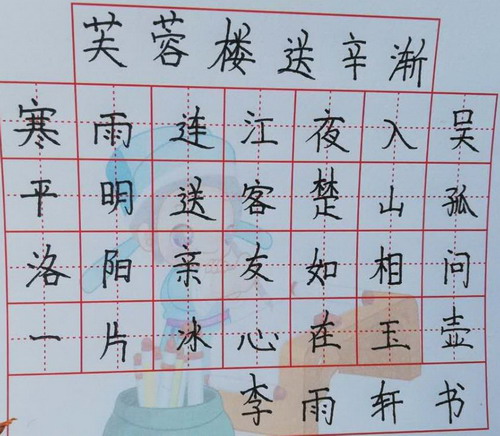 芙蓉楼送辛渐
寒雨连江夜入吴
平明送客楚山孤
洛阳亲友如相问
一片冰心在玉壶
李雨轩书